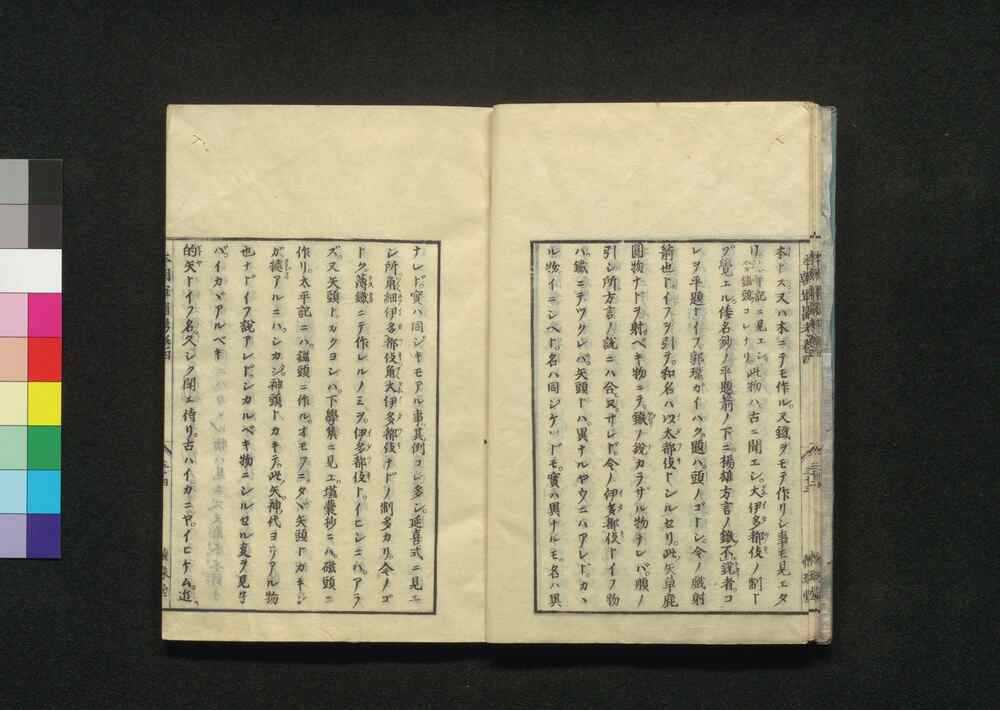 本トス又ハ木ニテモ作ル。又鐵ヲモテ作リシ事モ見エタ
リ。此物ハ古ニ聞エシ。犬伊多都伎ノ制ー
ヲ覚エル倭名鈔ノ平題箭ノ下ニ楊雄方言ノ鐵不説者。コ
レヲ平題トイフ郭璞ガイハク題ハ頭ノゴトシ。令ノ戯射
箭也トイフヲ引テ。和名ハ以太都伎トシルセリ。此矢草鹿
圓物ナドヲ射ベキ物ニテ。鐵ノ鋭カラザル物ナレバ。順ノ
引シ所方言ノ説ニハ合ヌ。サレド。今ノ伊多都伎トイフ物
ハ鐵ニテツクレバ。矢頭トハ異ナルヤウニハアレド。カヽ
ル物イニシヘト名ハ同ジケレドモ。實ハ異ナルモ。名ハ異
ナレド。實ハ同ジキモアル事其例コレ多シ。延喜式ニ見エ
シ所。角細伊多都伎角大伊多都伎ナドノ制多カリ。今ノゴ
トク薄鐵ニテ作レルノミヲ。伊多都伎ト。イヒシニハ。アラ
ズ。又矢頭トカクヨシハ。下學集ニ見エ。壒囊抄ニハ。磁頭ニ
作リ。太平記ニハ鏃頭ニ作ル。オモフニ。タヾ矢頭トカキル
ガ據アルニハ。シカジ。神頭トカキテ。此矢。神代ヨリアル物
也ナドイフ説アレド。シカルベキ物ニシルセル支ヲ見ズ
バ。イカヾアルベキ
的矢トイフ名久シク聞エ侍リ。古ハイカニヤ。イヒケム。造